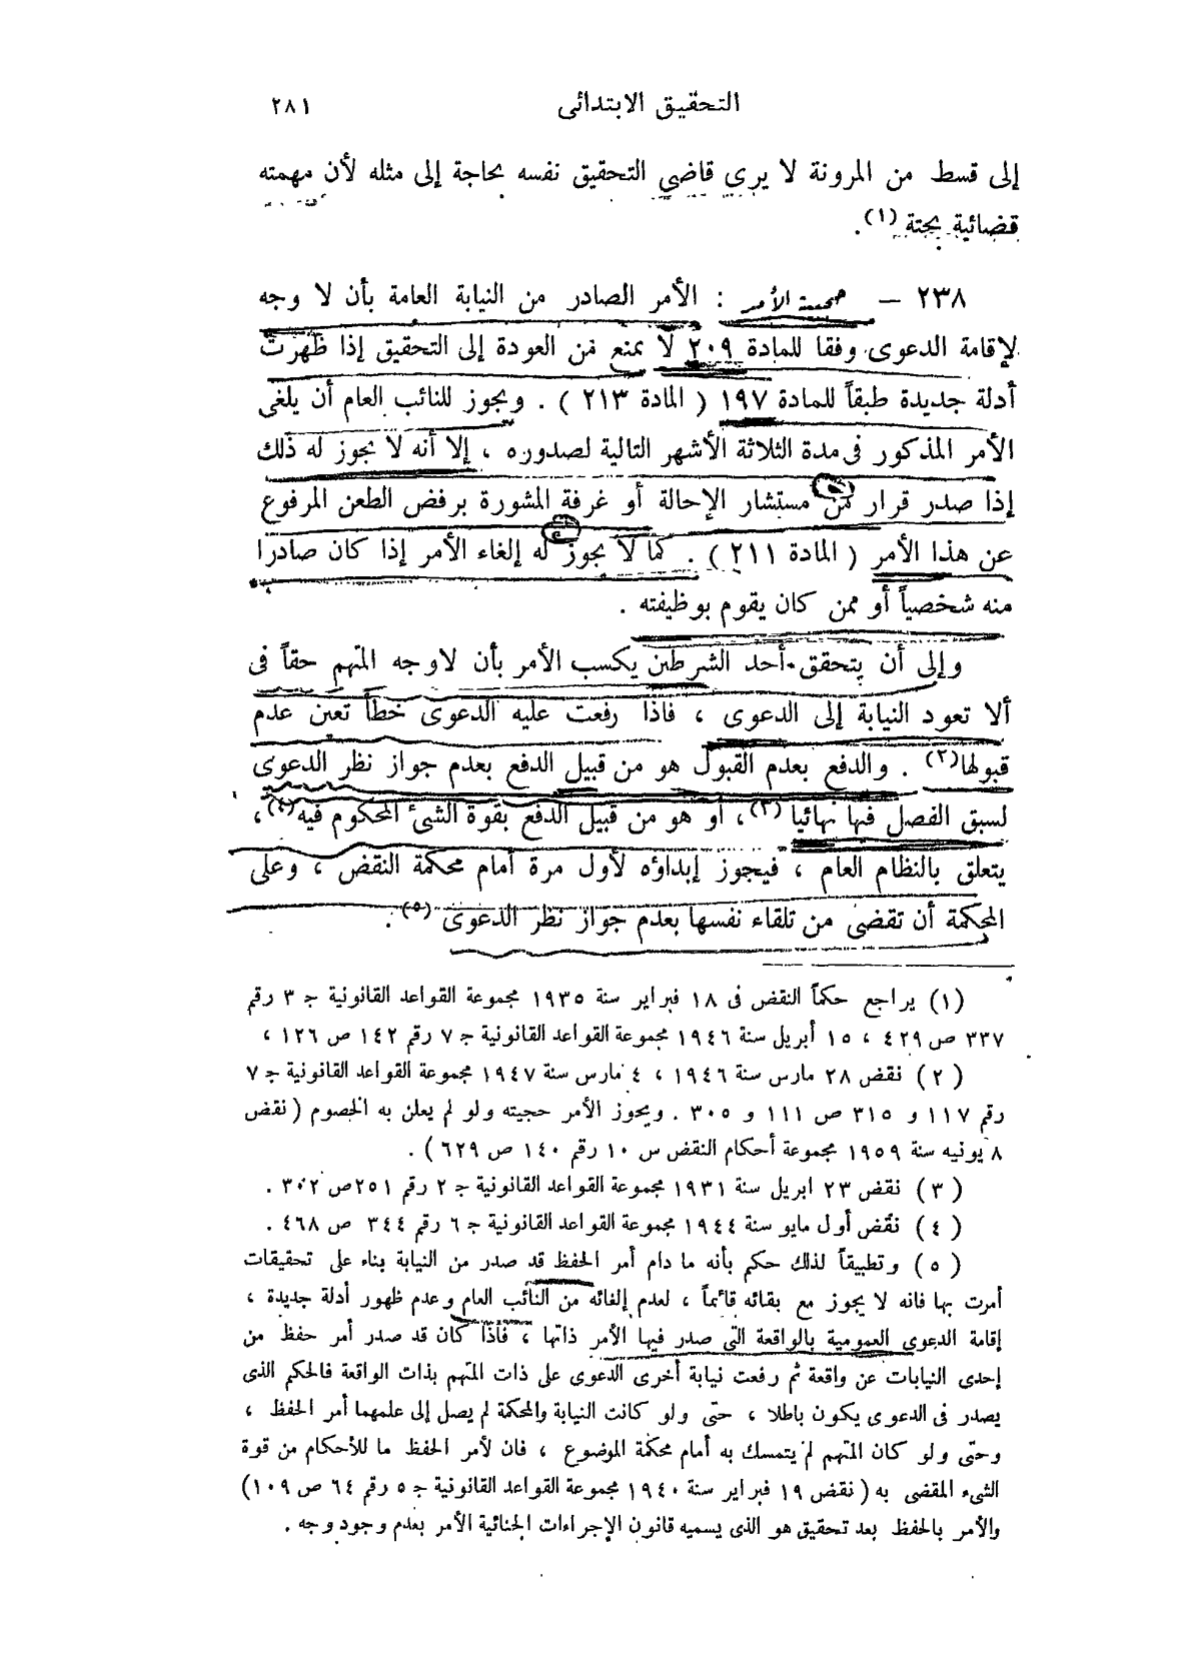 التحقيق الابتدائى ٢٨١
إلى قسط من المرونة لا يرى قاضي التحقيق نفسه بحاجة إلى مثله لأن مهمته
قضائية بحتة (١) .
٢٣٨ — حجية الأمر : الأمر الصادر من النيابة العامة بأن لا وجه
لإقامة الدعوى وفقا للمادة ٢٠٩ لا يمنع من العودة إلى التحقيق إذا ظهرت
أدلة جديدة طبقاً للمادة ١٩٧ ( المادة ٢١٣ ) . ويجوز للنائب العام أن يلغى
الأمر المذكور فى مدة الثلاثة الأشهر التالية لصدوره ، إلا أنه لا يجوز له ذلك
إذا صدر قرار من مستشار الإحالة أو غرفة المشورة برفض الطعن المرفوع
عن هذا الأمر ( المادة ٢١١ ) . كما لا يجوز له إلغاء الأمر إذا كان صادرا
منه شخصياً أو ممن كان يقوم بوظيفته .
وإلى أن يتحقق أحد الشرطين يكسب الأمر بأن لاوجه المتهم حقاً فى
ألا تعود النيابة إلى الدعوى ، فاذا رفعت عليه الدعوى خطأ تعين عدم
قبولها (٢) . والدفع بعدم القبول هو من قبيل الدفع بعدم جواز نظر الدعوى
لسبق الفصل فيها نهائيا (٣) ، أو هو من قبيل الدفع بقوة الشئ المحكوم فيه (٤) ،
يتعلق بالنظام العام ، فيجوز إبداؤه لأول مرة أمام محكمة النقض ، وعلى
المحكمة أن تقضى من تلقاء نفسها بعدم جواز نظر الدعوى (٥) .
(١) يراجع حكماً النقض فى ١٨ فبراير سنة ١٩٣٥ مجموعة القواعد القانونية ج ٣ رقم
٣٣٧ ص ٤٢٩ ، ١٥ أبريل سنة ١٩٤٦ مجموعة القواعد القانونية ج ٧ رقم ١٤٢ ص ١٢٦ ،
( ٢ ) نقض ٢٨ مارس سنة ١٩٤٦ ، ٤ مارس سنة ١٩٤٧ مجموعة القواعد القانونية ج ٧
رقم ١١٧ و ٣١٥ ص ١١١ و ٣٠٥ . ويحوز الأمر حجيته ولو لم يعلن به الخصوم ( نقض
٨ يونيه سنة ١٩٥٩ مجموعة أحكام النقض س ١٠ رقم ١٤٠ ص ٦٢٩ ) .
( ٣ ) نقض ٢٣ ابريل سنة ١٩٣١ مجموعة القواعد القانونية ج ٢ رقم ٢٥١ ص ٣٠٢ .
( ٤ ) نقض أول مايو سنة ١٩٤٤ مجموعة القواعد القانونية ج ٦ رقم ٣٤٤ ص ٤٦٨ .
( ٥ ) وتطبيقاً لذلك حكم بأنه ما دام أمر الحفظ قد صدر من النيابة بناء على تحقيقات
أمرت بها فانه لا يجوز مع بقائه قائماً ، لعدم إلغائه من النائب العام وعدم ظهور أدلة جديدة ،
إقامة الدعوى العمومية بالواقعة التى صدر فيها الأمر ذاتها ، فاذا كان قد صدر أمر حفظ من
إحدى النيابات عن واقعة ثم رفعت نيابة أخرى الدعوى على ذات المتهم بذات الواقعة فالحكم الذى
يصدر فى الدعوى يكون باطلا ، حتى ولو كانت النيابة والمحكمة لم يصل إلى علمهما أمر الحفظ ،
وحتى ولو كان المتهم لم يتمسك به أمام محكمة الموضوع ، فان لأمر الحفظ ما للأحكام من قوة
الشىء المقضى به ( نقض ١٩ فبراير سنة ١٩٤٠ مجموعة القواعد القانونية ج ٥ رقم ٦٤ ص ١٠٩)
والأمر بالحفظ بعد تحقيق هو الذى يسميه قانون الإجراءات الجنائية الأمر بعدم وجود وجه .